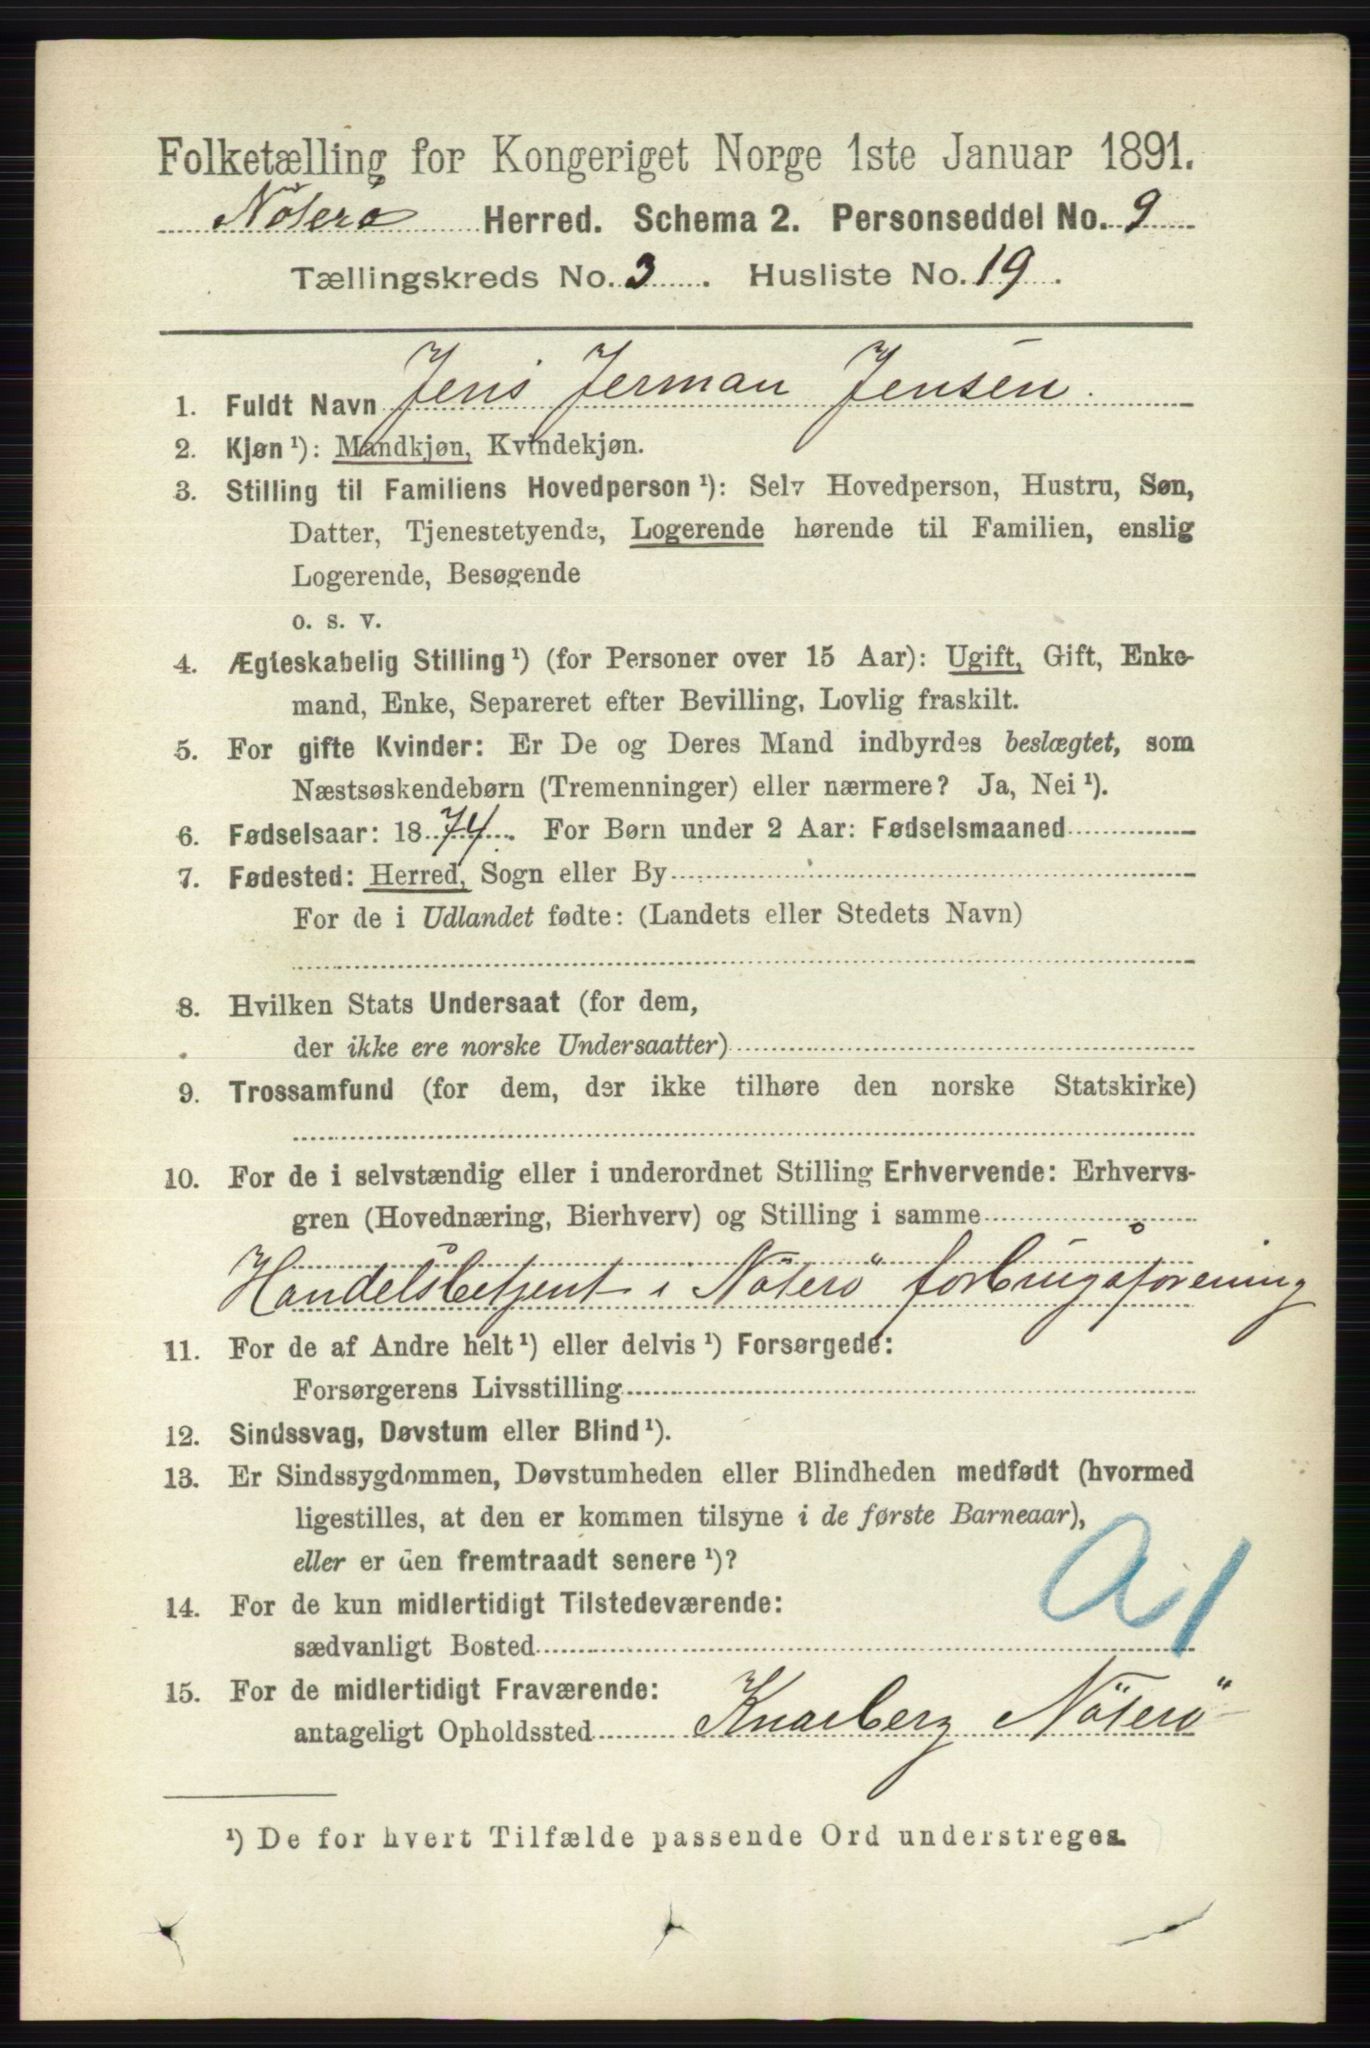 Folketælling for Kongeriget Norge 1ste Januar 1891.
Nöterö Herred. Schema 2. Personseddel No. 9
Tællingskreds No. 3. Husliste No. 19.
1. Fuldt Navn Jens Jerman Jensen.
2. Kjøn ¹): Mandkjøn, Kvindekjøn.
3. Stilling til Familiens Hovedperson ¹): Selv Hovedperson, Hustru, Søn,
Datter, Tjenestetyende, Logerende hørende til Familien, enslig
Logerende, Besøgende
o. s. v.
4. Ægteskabelig Stilling ¹) (for Personer over 15 Aar): Ugift, Gift, Enke-
mand, Enke, Separeret efter Bevilling, Lovlig fraskilt.
5. For gifte Kvinder: Er De og Deres Mand indbyrdes beslægtet, som
Næstsøskendebørn (Tremenninger) eller nærmere? Ja, Nei ¹).
6. Fødselsaar: 1874. For Børn under 2 Aar: Fødselsmaaned
7. Fødested: Herred, Sogn eller By
For de i Udlandet fødte: (Landets eller Stedets Navn)
8. Hvilken Stats Undersaat (for dem,
der ikke ere norske Undersaatter)
9. Trossamfund (for dem, der ikke tilhøre den norske Statskirke)
10. For de i selvstændig eller i underordnet Stilling Erhvervende: Erhvervs-
gren (Hovednæring, Bierhverv) og Stilling i samme
Handelsbetjent i Nöterö forbrugsforening
11. For de af Andre helt ¹) eller delvis ¹) Forsørgede:
Forsørgerens Livsstilling
12. Sindssvag, Døvstum eller Blind ¹).
13. Er Sindssygdommen, Døvstumheden eller Blindheden medfødt (hvormed
ligestilles, at den er kommen tilsyne i de første Barneaar),
eller er den fremtraadt senere ¹)?
14. For de kun midlertidigt Tilstedeværende:
sædvanligt Bosted
a1
15. For de midlertidigt Fraværende:
antageligt Opholdssted Knarberg Nöterö
¹) De for hvert Tilfælde passende Ord understreges.